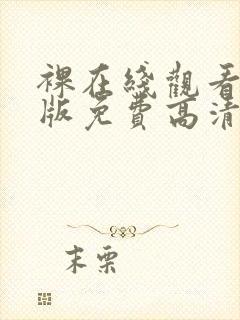 裸在綫觀看
版免費高清
末栗